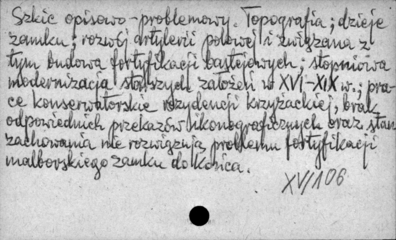 Szkic opisowo-problemowy. Topografia; dzieje
zamku; rozwój artylerii polowej i związana z
tym budowa fortyfikacji bastejowych; stopniowa
modernizacja starszych założeń w XVI-XIX w.; pra-
ce konserwatorskie rezydencji krzyżackiej, brak
odpowiednich przekazów ikonograficznych oraz stan
zachowania nie rozwiązują problemu fortyfikacji
malborskiego zamku do końca.
XV/106